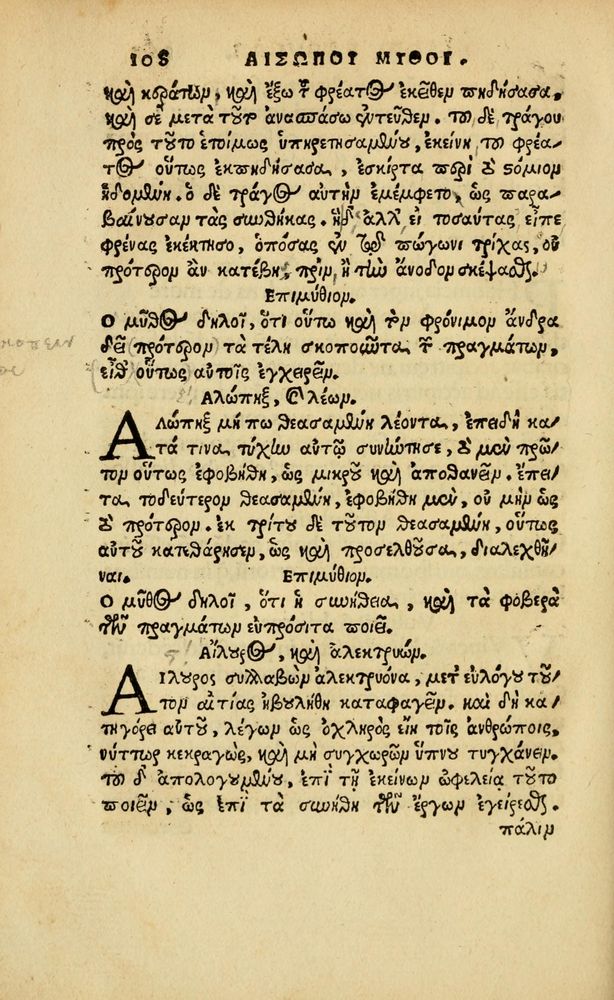 108 ΑΙΣΩΠΟΥ ΜΥΘΟΙ.
καὶ κεράτων, καὶ ἔξω τοῦ φρέατος ἐκεῖθεν πηδήσασα,
καὶ σὲ μετὰ τοῦτ' ἀνασπάσω ἐντεῦθεν. τοῦ δὲ τράγου
πρὸς τοῦτο ἑτοίμως ὑπηρετησαμένου, ἐκείνη τοῦ φρέα-
τος οὕτως ἐκπηδήσασα, ἐσκίρτα περὶ τὸ στόμιον
ἡδομένη. ὁ δὲ τράγος αὐτὴν ἐμέμφετο, ὡς παρα-
βαίνουσαν τὰς συνθήκας. ἡ δ' ἀλλ' εἰ τοσαύτας εἶπε
φρένας ἐκέκτησο, ὁπόσας ἐν τῷ πώγωνι τρίχας, οὐ
πρότερον ἂν κατέβης, πρὶν ἢ τὴν ἄνοδον σκέψασθαι.
Επιμύθιον.
Ο μῦθος δηλοῖ, ὅτι οὕτω καὶ τὸν φρόνιμον ἄνδρα
δεῖ πρότερον τὰ τέλη σκοποῦντα τῶν πραγμάτων,
εἶθ' οὕτως αὐτοῖς ἐγχειρεῖν.
Αλώπηξ, καὶ λέων.
Αλώπηξ μή πω θεασαμένη λέοντα, ἐπειδὴ κα-
τά τινα τύχην αὐτῷ συνήντησε, τὸ μὲν πρῶ-
τον οὕτως ἐφοβήθη, ὡς μικροῦ καὶ ἀποθανεῖν. ἔπει-
τα τοδεύτερον θεασαμένη, ἐφοβήθη μὲν, οὐ μὴν ὡς
τὸ πρότερον. ἐκ τρίτου δὲ τοῦτον θεασαμένη, οὕτως
αὐτοῦ κατεθάρησεν, ὡς καὶ προσελθοῦσα, διαλεχθῆ-
ναι. Επιμύθιον.
Ο μῦθος δηλοῖ, ὅτι ἡ συνήθεια, καὶ τὰ φοβερὰ
τῶν πραγμάτων εὐπρόσιτα ποιεῖ.
Αἴλουρος, καὶ ἀλεκτρυών.
Αιλουρος συλλαβὼν ἀλεκτρυόνα, μετ' εὐλόγου τοῦ-
τον αἰτίας ἠβουλήθη καταφαγεῖν. καὶ δὴ κα-
τηγόρει αὐτοῦ, λέγων ὡς ὀχληρὸς εἴη τοῖς ἀνθρώποις,
νύττωρ κεκραγὼς, καὶ μὴ συγχωρῶν ὕπνου τυγχάνειν.
τοῦ δ' ἀπολογουμένου, ἐπὶ τῇ ἐκείνων ὠφελείᾳ τοῦτο
ποιεῖν, ὡς ἐπὶ τὰ συνήθη τῶν ἔργων ἐγείρεσθαι.
πάλιν